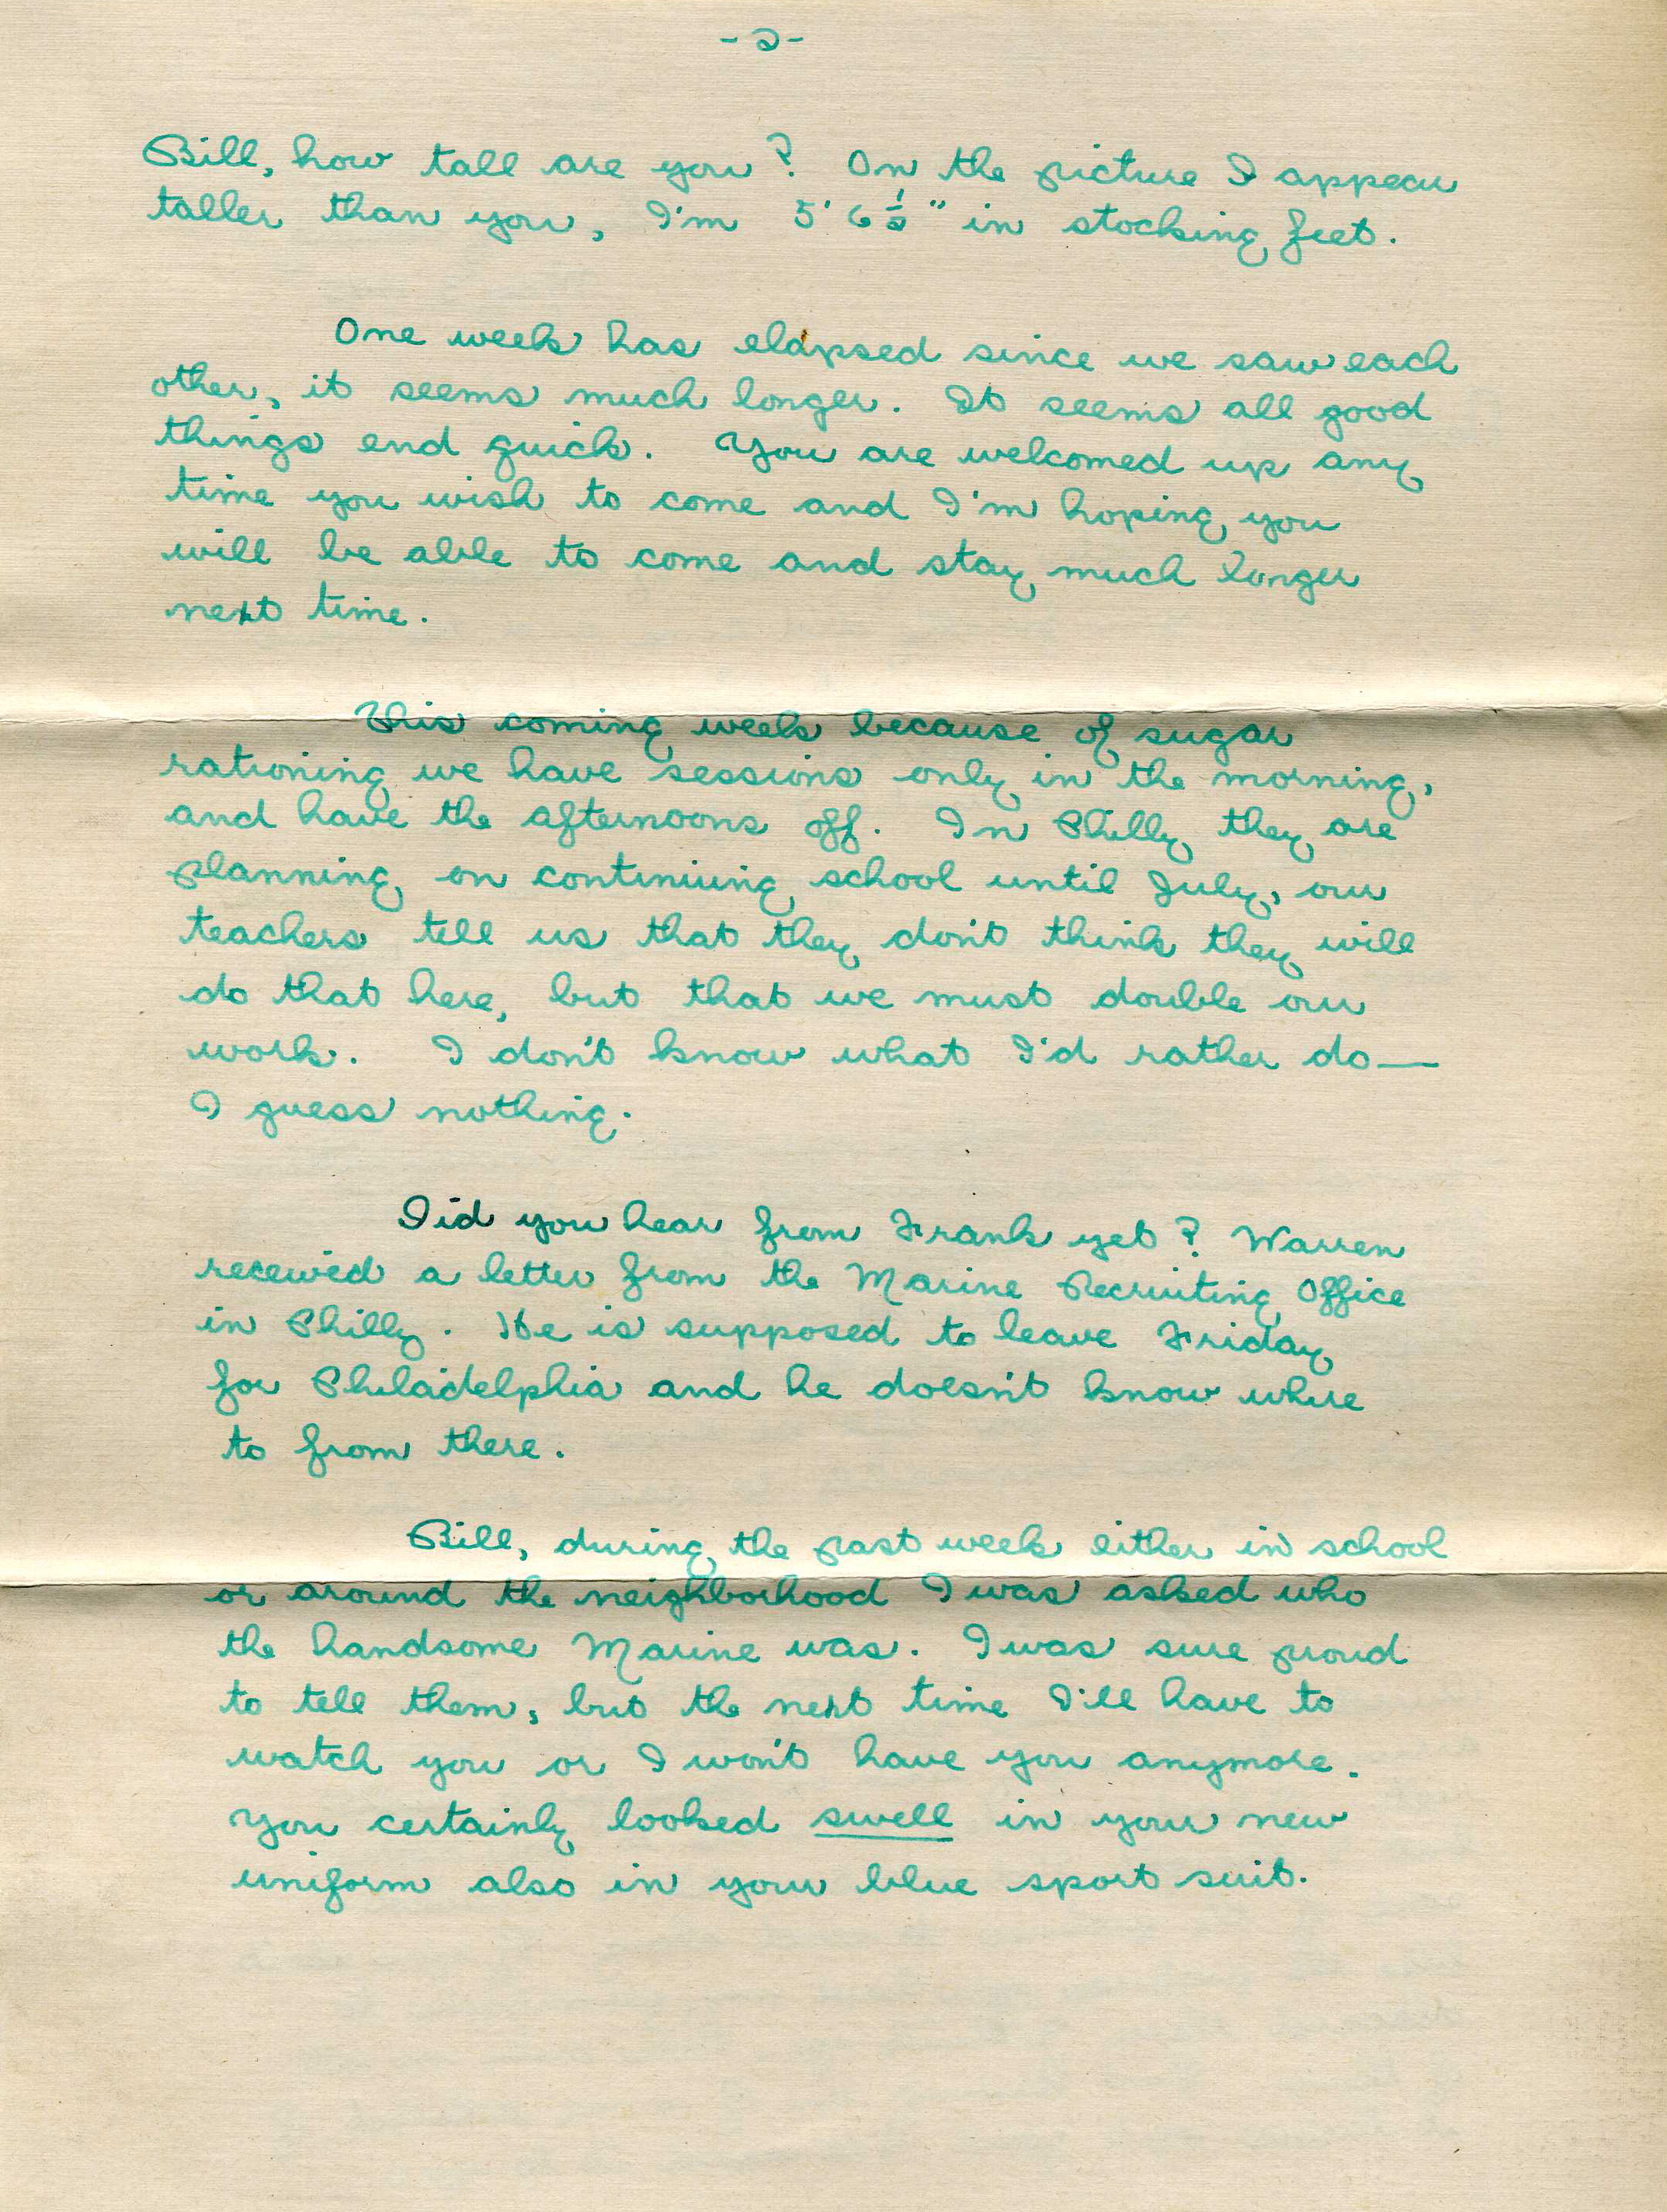 - 2 -
Bill, how tall are you? On the picture I appear
taller than you, I'm 5' 6 1/2" in stocking feet.
One week has elapsed since we saw each
other, it seems much longer. It seems all good
things end quick. You are welcomed up any
time you wish to come and I'm hoping you
will be able to come and stay much longer
next time.
This coming week because of sugar
rationing we have sessions only in the morning,
and have the afternoons off. In Philly they are
planning on continuing school until July, our
teachers tell us that they don't think they will
do that here, but that we must double our
work. I don't know what I'd rather do—
I guess nothing.
Did you hear from Frank yet? Warren
received a letter from the Marine Recruiting Office
in Philly. He is supposed to leave Friday
for Philadelphia and he doesn't know where
to from there.
Bill, during the past week either in school
or around the neighborhood I was asked who
the handsome Marine was. I was sure proud
to tell them, but the next time I'll have to
watch you or I won't have you anymore.
You certainly looked swell in your new
uniform also in your blue sport suit.